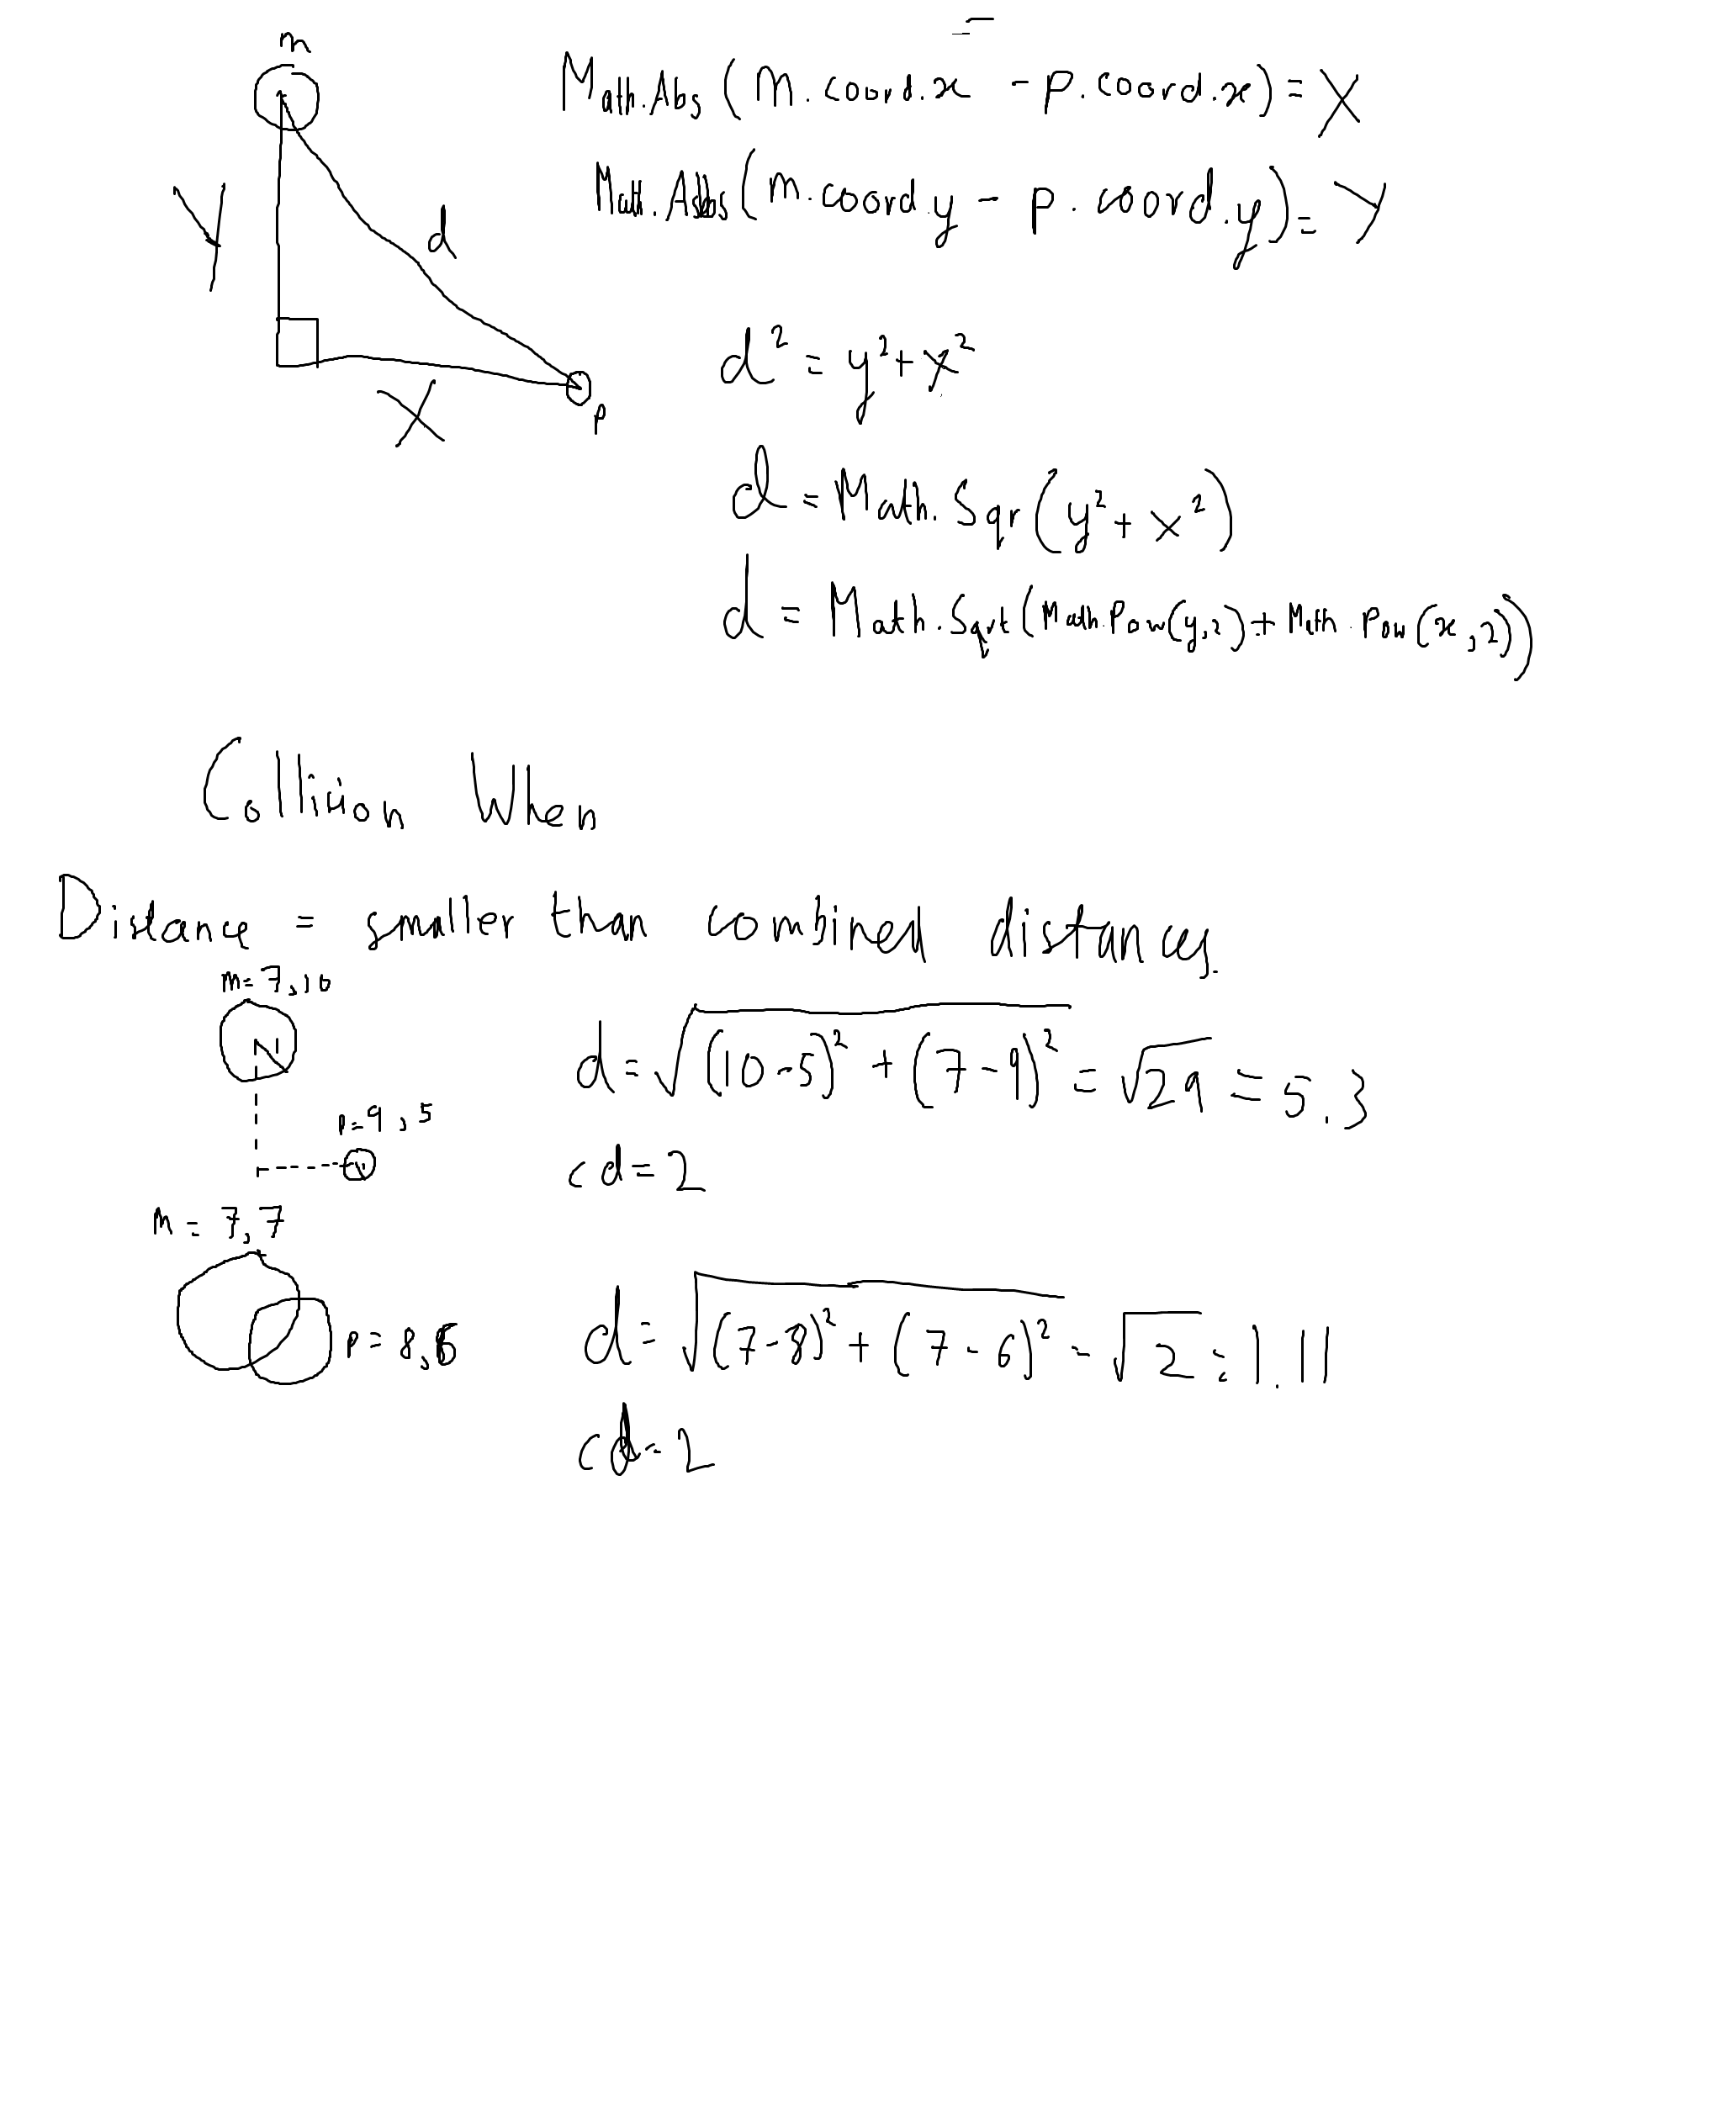 m
Math.Abs (m.coord.x - p.coord.x) = X
Math.Abs (m.coord.y - p.coord.y) = Y
Y
d
X
p
d² = y² + x²
d = Math.Sqr (y² + x²)
d = Math.Sqrt (Math.Pow(y,2) + Math.Pow(x,2))
Collision When
Distance = smaller than combined distances.
m = 7, 10
d = √(10-5)² + (7-9)² = √29 = 5.3
p = 9, 5
cd = 2
m = 7, 7
p = 8, 6
d = √(7-8)² + (7-6)² = √2 = 1.11
cd = 2